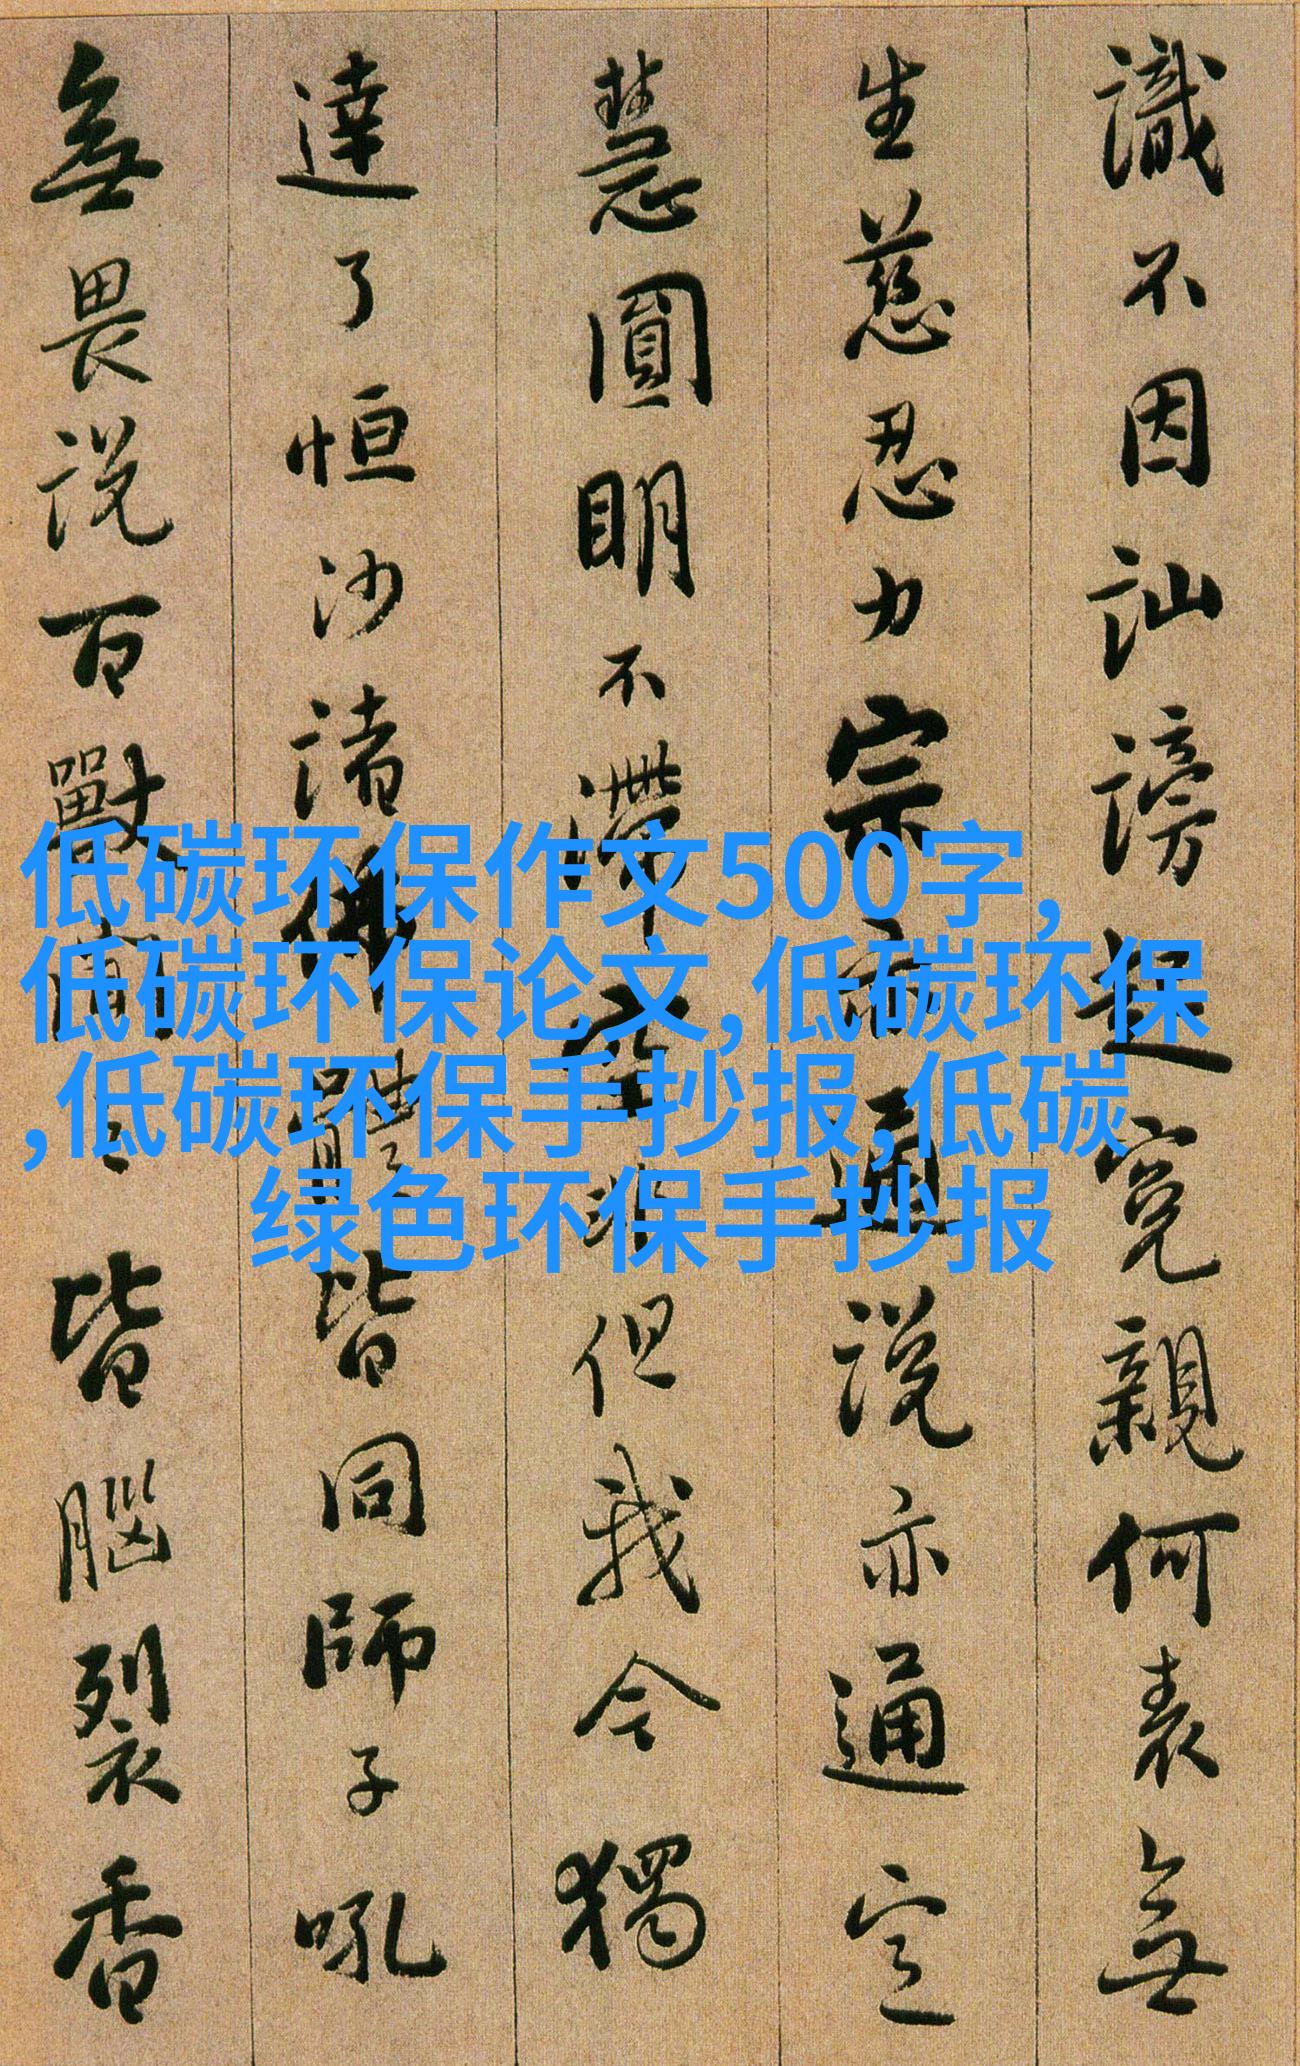 識不因訕謗起寃親何表無
生慈忍力宗亦通説亦通定
慧圓明不滯空非但我今獨
達了恒沙諸佛體皆同師子吼
無畏説百獸聞之皆腦裂香
低碳环保作文500字,
低碳环保论文,低碳环保
,低碳环保手抄报,低碳
绿色环保手抄报